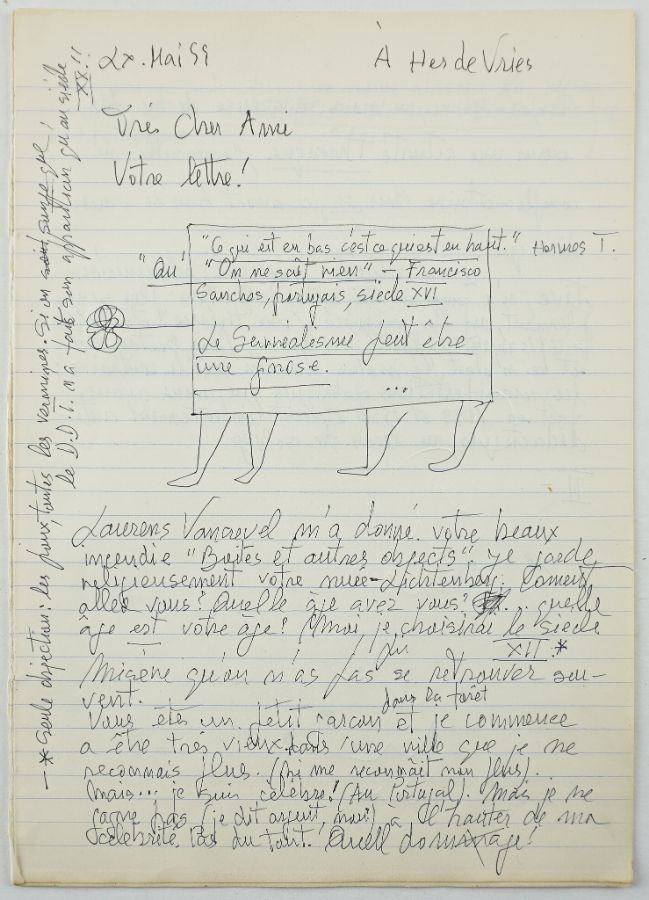 À Her de Vries
Très Cher Ami
Votre lettre!
"Ce qui est en bas c'est ce qui est en haut." Hermes T.
"ou" "On ne sait rien" – Francisco
Sanches, portugais, siècle XVI
Le Surréalisme peut être
une gnose.
...
Laurens Vancrevel m'a donné votre beaux
incendie "Boites et autres objects". Je garde
religieusement votre Lichtenberg. Coment
allez vous? Quelle âje avez vous? ... quelle
âge est votre age? (Moi, je choisirai le siècle
XII.*
qu'on n'as pas se retrouver sou-
vent.
dans la forêt
Vous êtes un petit garçon et je commence
a être très vieux dans une ville que je ne
reconnais plus. (Ni me reconnaît non plus).
Mais... je suis célèbre! (Au Portugal). Mais je ne
gagne pas (je dit argent, moi) à l'hauter de ma
célébrité. Pas du tout. Quell domage!
– * Seule objection: les poux, toutes les vermines. Si on suppose que
le D.D.T. n'a fait son apparition qu'au siècle
XX!!